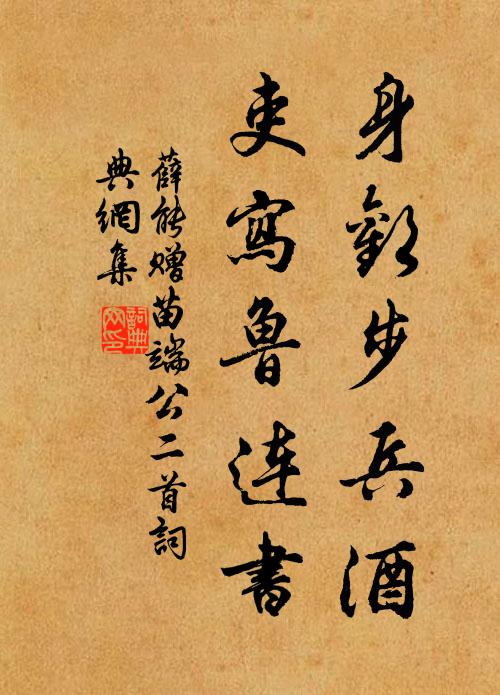 身歡步兵酒
吏寫魯連書
薛能贈苗端公二首詞
典網集
詞典
网印